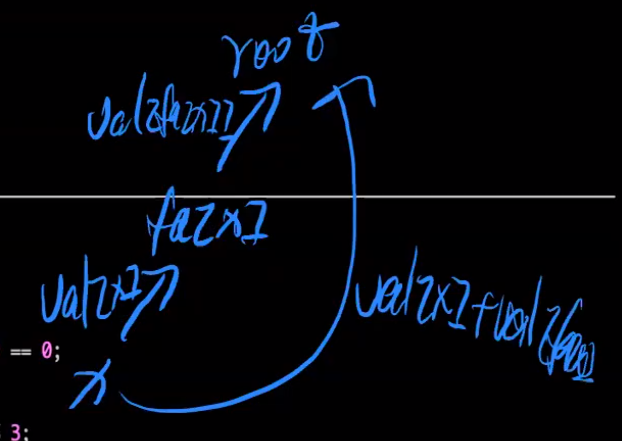 root
val[fa[x]]
fa[x]
val[x]
val[x]+val[fa[x]]
== 0;
x
3;